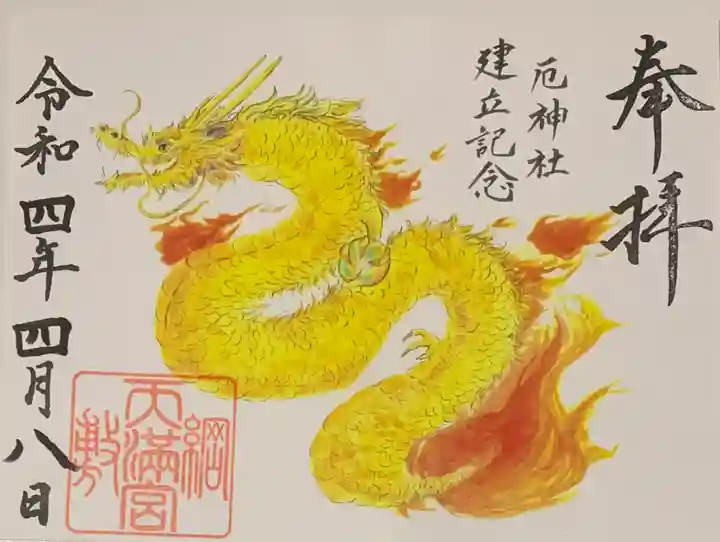 奉拝
厄神社
建立記念
綱
天満宮
敷
令和四年四月八日